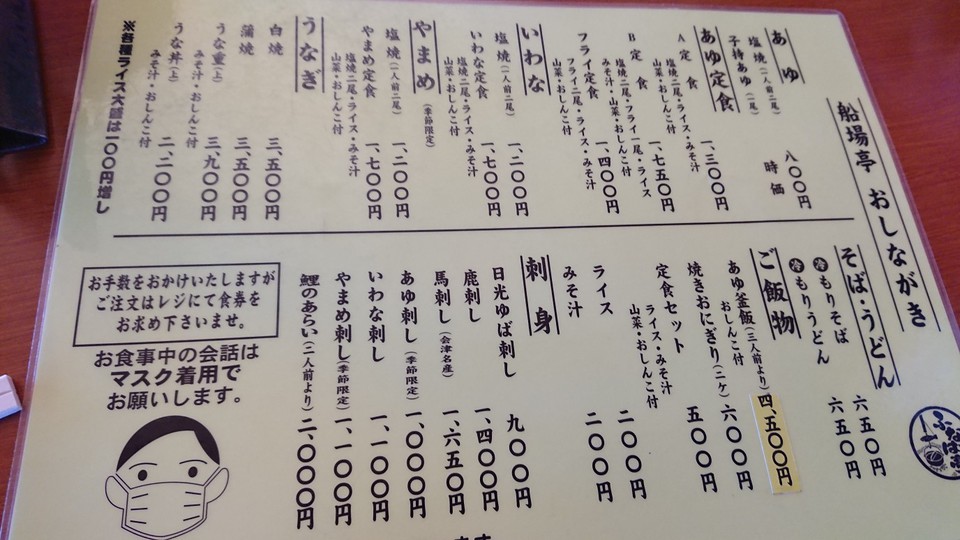 船場亭 おしながき
あゆ
塩焼(一人前二尾) 八〇〇円
子持あゆ(一尾) 時価
あゆ定食
A定食 一、三〇〇円
塩焼二尾・ライス・みそ汁
山菜・おしんこ付
B定食 一、七五〇円
塩焼二尾・フライ一尾・ライス
みそ汁・山菜・おしんこ付
フライ定食 一、四〇〇円
フライ二尾・ライス・みそ汁
山菜・おしんこ付
いわな
塩焼(一人前二尾) 一、二〇〇円
いわな定食 一、七〇〇円
塩焼二尾・ライス・みそ汁
山菜・おしんこ付
やまめ(季節限定)
塩焼(一人前二尾) 一、二〇〇円
やまめ定食 一、七〇〇円
塩焼二尾・ライス・みそ汁
山菜・おしんこ付
うなぎ
白焼 三、五〇〇円
蒲焼 三、五〇〇円
うな重(上) 三、九〇〇円
みそ汁・おしんこ付
うな丼(上) 二、二〇〇円
みそ汁・おしんこ付
※各種ライス大盛は一〇〇円増し
そば・うどん
冷もりそば 六五〇円
冷もりうどん 六五〇円
ご飯物
あゆ釜飯(三人前より) 四、五〇〇円
おしんこ付
焼きおにぎり(二ケ) 六〇〇円
定食セット 五〇〇円
ライス・みそ汁
山菜・おしんこ付
ライス 二〇〇円
みそ汁 二〇〇円
刺身
日光ゆば刺し 九〇〇円
鹿刺し 一、四〇〇円
馬刺し(会津名産) 一、六五〇円
あゆ刺し(季節限定) 一、〇〇〇円
いわな刺し 一、一〇〇円
やまめ刺し(季節限定) 一、一〇〇円
鯉のあらい(二人前より) 二、〇〇〇円
お手数をおかけいたしますが
ご注文はレジにて食券を
お求め下さいませ。
お食事中の会話は
マスク着用で
お願いします。